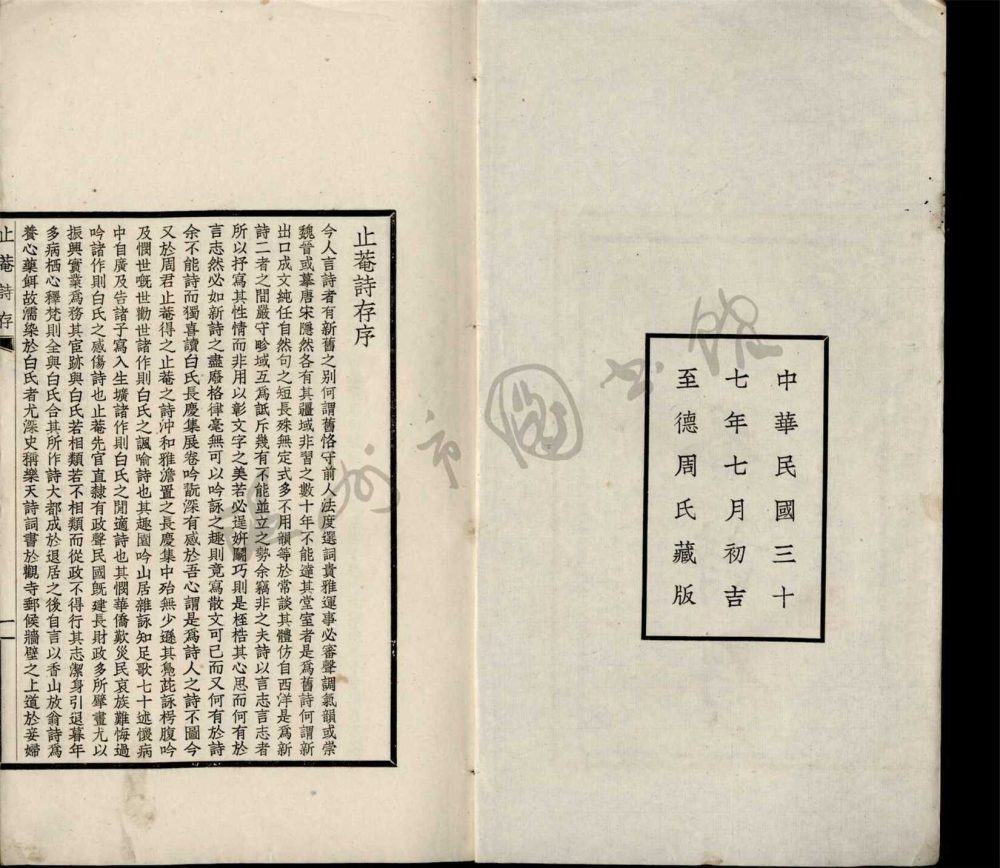 中華民國三十
七年七月初吉
至德周氏藏版
止菴詩存序
今人言詩者有新舊之別何謂舊恪守前人法度選詞貴雅運事必審聲調氣韻或崇
魏晉或摹唐宋隱然各有其疆域非習之數十年不能達其堂室者是爲舊詩何謂新
出口成文純任自然句之短長殊無定式多不用韻等於常談其體仿自西洋是爲新
詩二者之間嚴守畛域互爲詆斥幾有不能並立之勢余竊非之夫詩以言志言志者
所以抒寫其性情而非用以彰文字之美若必逞姸鬭巧則是桎梏其心思而何有於
言志然必如新詩之盡廢格律毫無可以吟詠之趣則竟寫散文可已而又何有於詩
余不能詩而獨喜讀白氏長慶集展卷吟翫深有感於吾心謂是爲詩人之詩不圖今
又於周君止菴得之止菴之詩沖和雅澹置之長慶集中殆無少遜其鳧茈詠枵腹吟
及憫世嘅世勸世諸作則白氏之諷喻詩也其趣園吟山居雜詠知足歌七十述懷病
中自廣及告諸子寫入生壙諸作則白氏之閒適詩也其憫華僑歎災民哀族難悔過
吟諸作則白氏之感傷詩也止菴先官直隸有政聲民國旣建長財政多所擘畫尤以
振興實業爲務其宦跡與白氏若相類若不相類而從政不得行其志潔身引退暮年
多病栖心釋梵則全與白氏合其所作詩大都成於退居之後自言以香山放翁詩爲
養心藥餌故濡染於白氏者尤深史稱樂天詩詞書於觀寺郵候牆壁之上道於妾婦
止菴詩存
一
州市圖書館